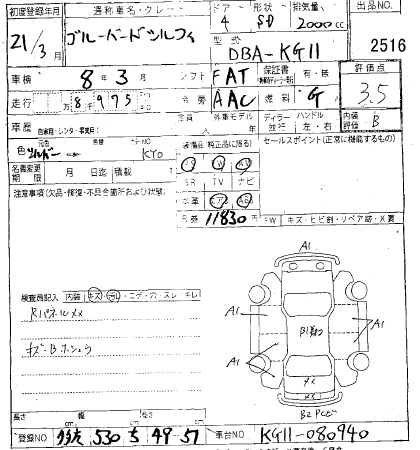 初度登録年月 通称車名・グレード ドア 形状 排気量 出品NO
21/3月 ブルーバードシルフィ 4 SD 2000cc
型式 DBA-KG11 2516
車検 8年3月 シフト FAT 保証書 有・無 評価点
走行 8千975 冷房 AAC 燃料 G 3.5
定員 人 外車モデル 年 ディーラー 並行 ハンドル 左・右 内装評価 B
車歴 自家用・レンタ・事業用( )
色 シルバー 色替 カラーNO KY0 装備品(純正品に限る) セールスポイント(正常に機能するもの)
名義変更期限 月 日迄 積載 SR TV ナビ
注意事項(欠品・修復・不具合箇所および状態) 革
11830円 キズ・ヒビ割・リペア跡・X要
A1
検査員記入 内装 キズ・コゲ・穴・スレ・キレ
Rパネルメメ
キズ・Bホシュウ
A1 A1
A1
B2 PCビ
長さ 幅 高さ
登録NO 530 ち 49-57 車台NO KG11-080940